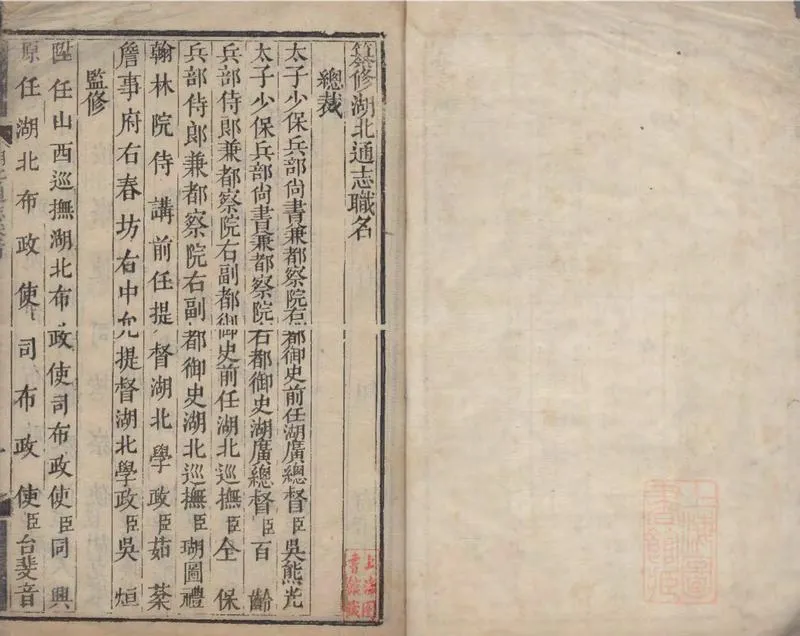 纂修湖北通志職名
總裁
太子少保兵部尚書兼都察院右都御史前任湖廣總督臣吳熊光
太子少保兵部尚書兼都察院右都御史湖廣總督臣百齡
兵部侍郎兼都察院右副都御史前任湖北巡撫臣全保
兵部侍郎兼都察院右副都御史湖北巡撫臣瑚圖禮
翰林院侍講前任提督湖北學政臣茹棻
詹事府右春坊右中允提督湖北學政臣吳烜
監修
陞任山西巡撫湖北布政使司布政使臣同興
原任湖北布政使司布政使臣台斐音
上海圖書館藏